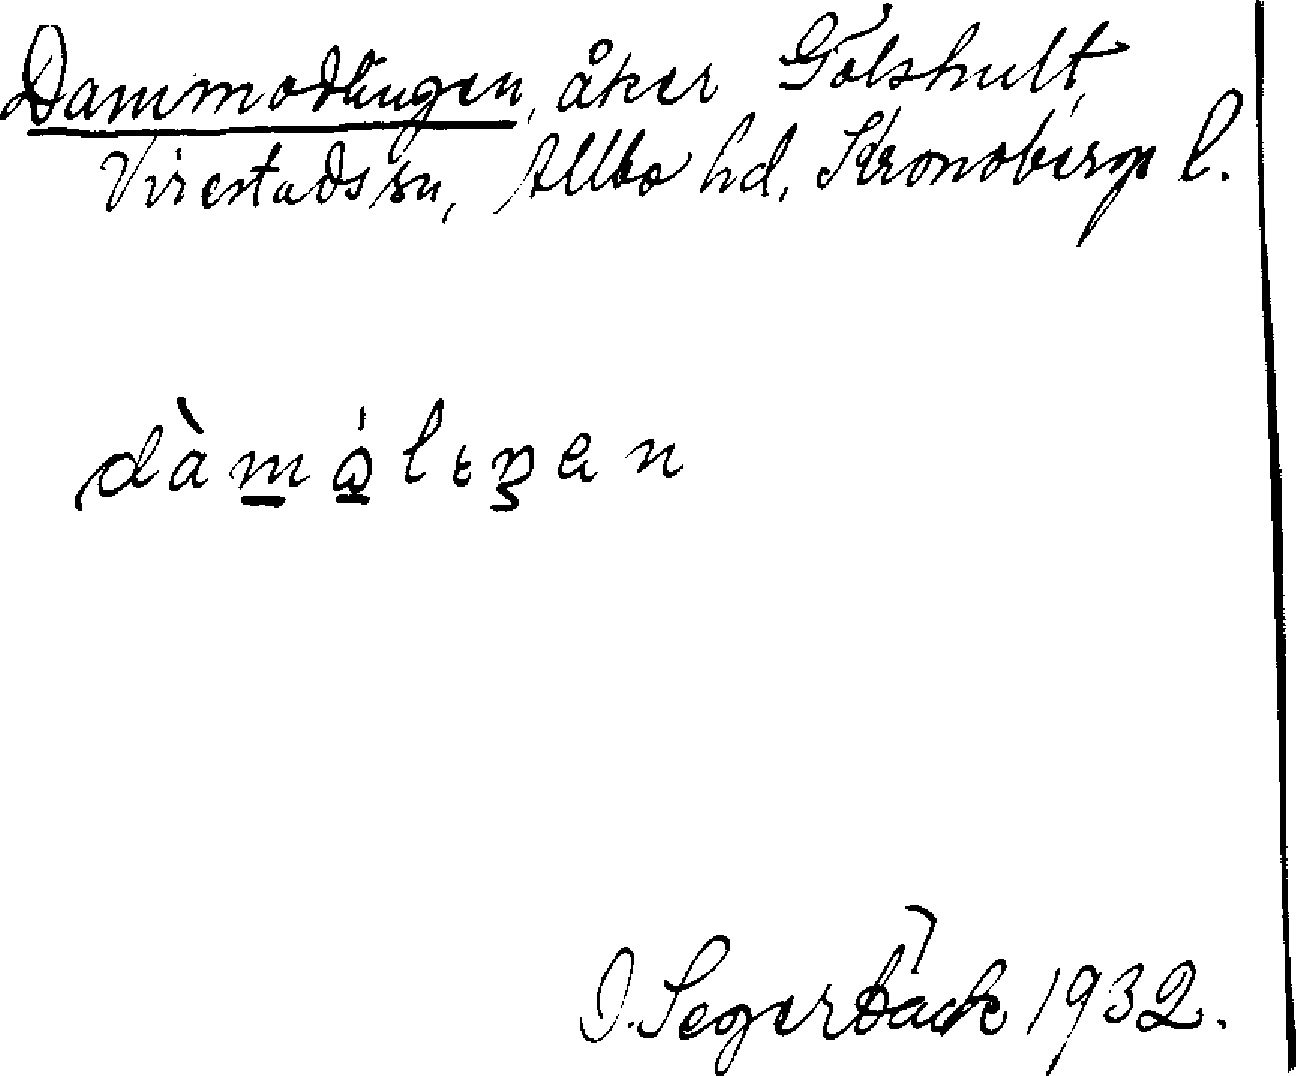 Dammodlingen, åker Gölshult,
Virestads sn, Allbo hd, Kronobergs l.
dàmǫ̀lɩŋen
O. Segerbäck 1932.